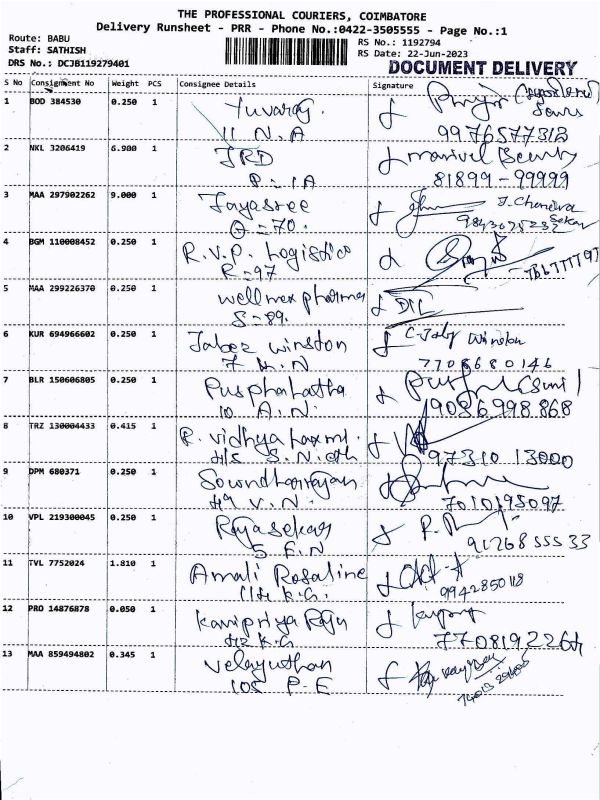 THE PROFESSIONAL COURIERS, COIMBATORE
Delivery Runsheet - PRR - Phone No.:0422-3505555 - Page No.:1
Route: BABU
Staff: SATHISH
DRS No.: DCJB119279401
RS No.: 1192794
RS Date: 22-Jun-2023
DOCUMENT DELIVERY
S No Consignment No Weight PCS Consignee Details Signature
1 BOD 384530 0.250 1 Yuvaraj
11 N.A 9976577312
2 NKL 3206419 6.900 1 JRD manivel Security
P=1A 81899-99999
3 MAA 297902262 9.000 1 Jayasree J. Chandra
G=70. Sekar
4 BGM 110008452 0.250 1 R.V.P. Logistics
R=97
5 MAA 299226370 0.250 1 wellmex pharma
S=89.
6 KUR 694966602 0.250 1 Jabez winston C. Jabez Winston
7 H.N 7708680146
7 BLR 150606805 0.250 1 Pusphalatha
10 A.N. 9086998868
8 TRZ 130004433 0.415 1 R. vidhya Laxmi.
97310 13000
9 DPM 680371 0.250 1 Soundharrajan
49 V.N. 7010195097
10 VPL 219300045 0.250 1 Rajasekar
5 E.N 9126855533
11 TVL 7752024 1.810 1 Amali Rosaline
114 K.G. 9942850118
12 PRO 14876878 0.050 1 kanipriya Raju
42 K.G 7708192264
13 MAA 859494802 0.345 1 Velayuthan
105 P-E